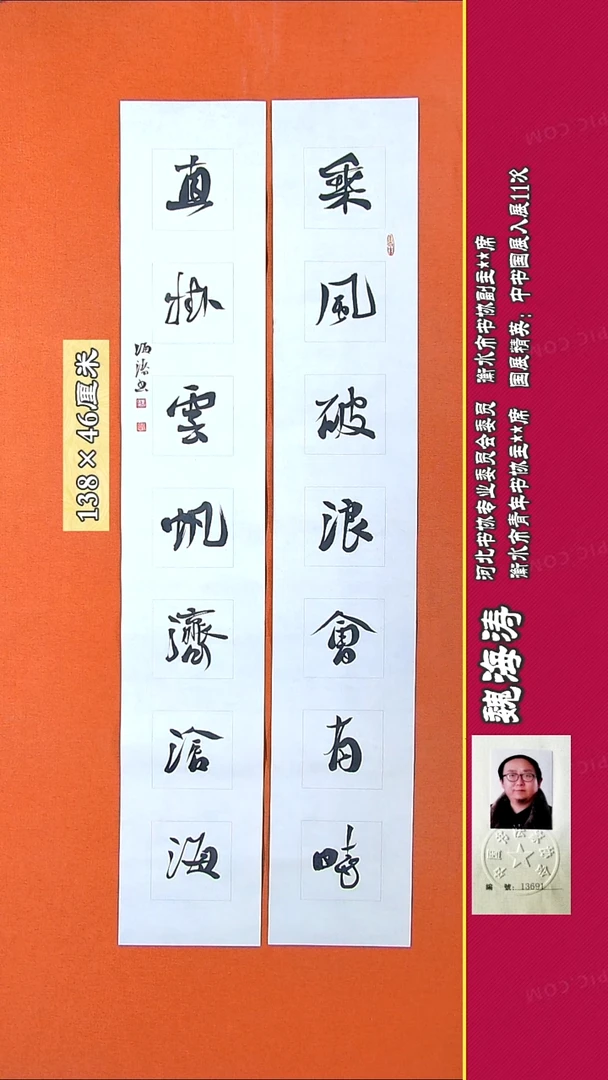 乘風破浪會有時
直掛雲帆濟滄海
138×46厘米
河北书协专业委员会委员 衡水市书协副主**席
衡水市青年书协主**席 国展精英：中书国展入展11次
魏海涛
编 號：13691
PIC.COM
PIC.COM
PIC.COM
PIC.COM